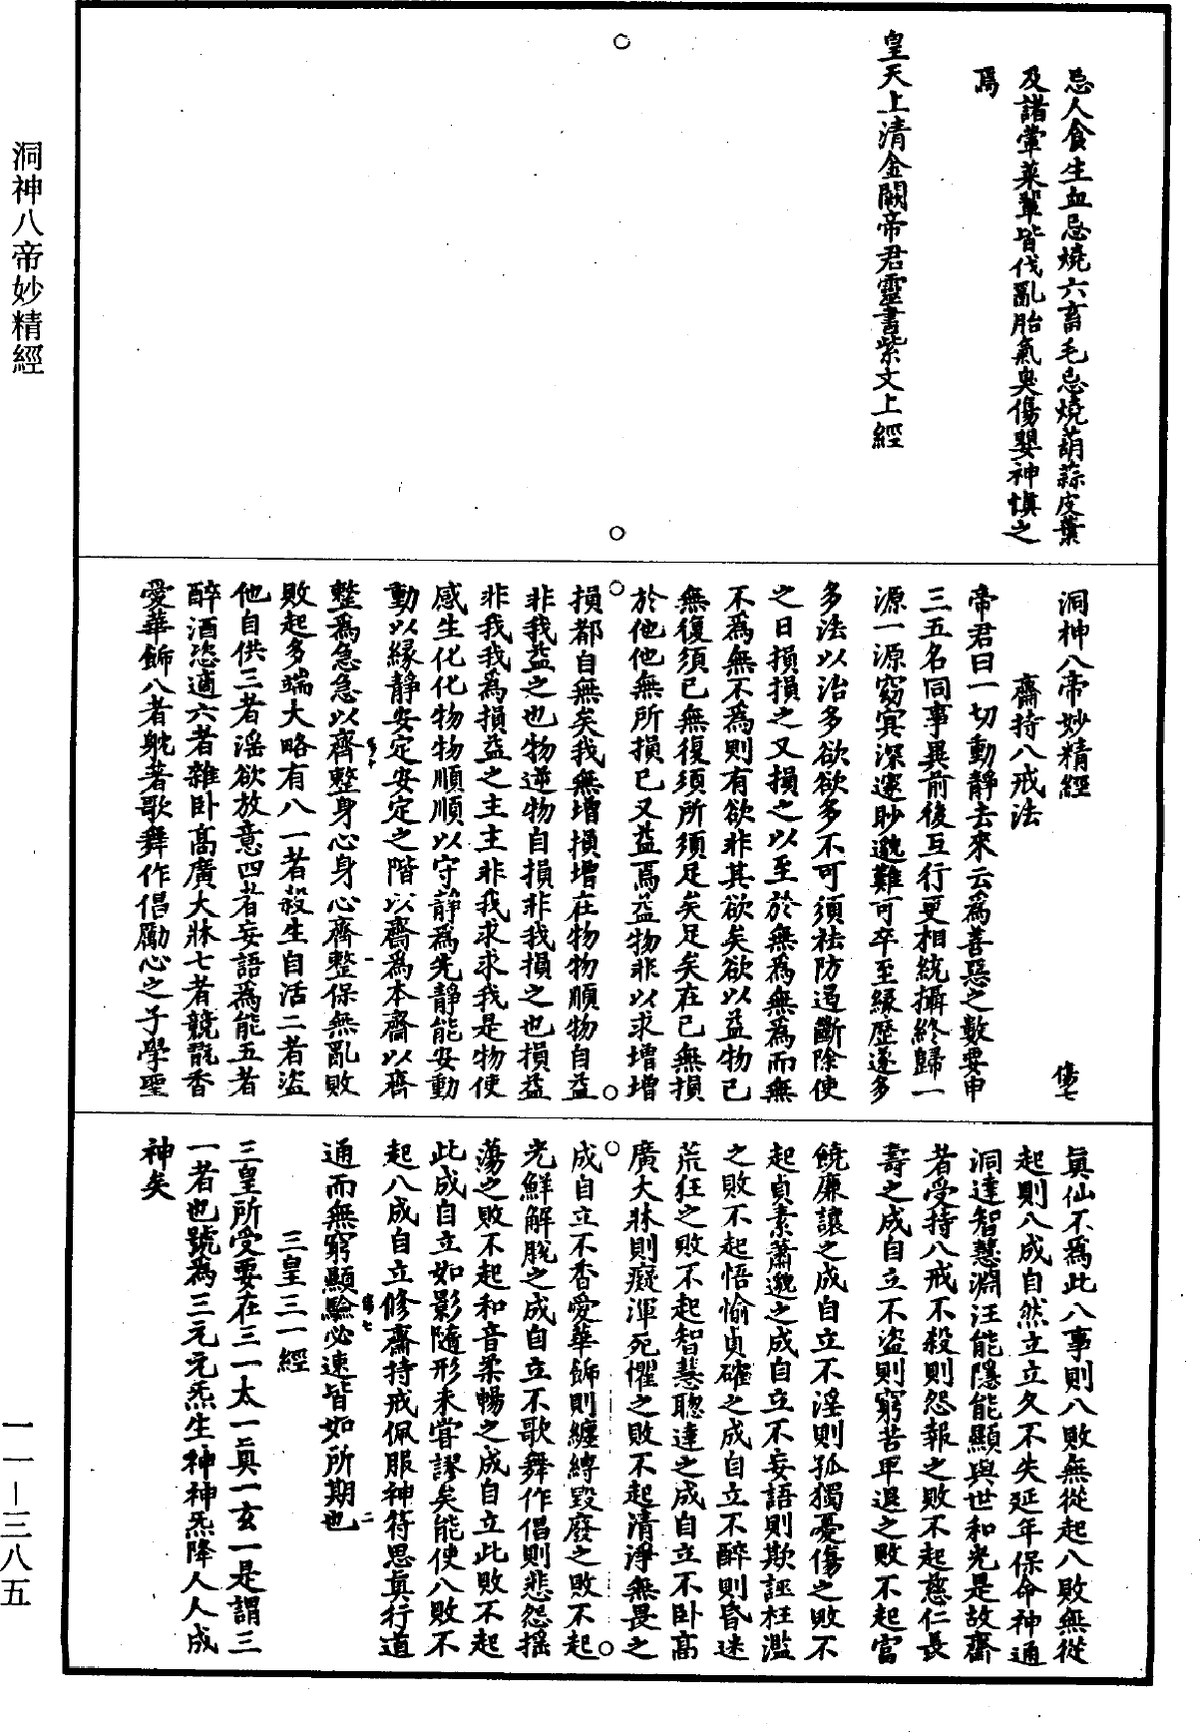 洞神八帝妙精經
一一－三八五
忌人食生血忌燒六畜毛忌燒葫蒜皮葉
及諸葷菜輩皆伐亂胎氣臭傷嬰神慎之
焉
皇天上清金闕帝君靈書紫文上經
洞神八帝妙精經
傷七
齋持八戒法
帝君曰一切動靜去來云為善惡之數要申
三五名同事異前後互行更相統攝終歸一
源一源窈冥深邃眇邈難可卒至緣歷遂多
多法以治多欲欲多不可須祛防遏斷除使
之日損損之又損之以至於無為無為而無
不為無不為則有欲非其欲矣欲以益物已
無復須已無復須所須足矣足矣在己無損
於他他無所損已又益焉益物非以求增增
損都自無矣我無增損增在物物順物自益
非我益之也物逆物自損非我損之也損益
非我我為損益之主主非我求求我是物使
感生化化物物順順以守靜為先靜能安動
動以緣靜安定安定之階以齋為本齋以齊
整為急急以齊整身心身心齊整保無亂敗
敗起多端大略有八一者殺生自活二者盜
他自供三者淫欲放意四者妄語為能五者
醉酒恣適六者雜卧高廣大牀七者競翫香
愛華飾八者躭著歌舞作倡勵心之子學聖
真仙不為此八事則八敗無從起八敗無從
起則八成自然立立久不失延年保命神通
洞達智慧淵汪能隱能顯與世和光是故齋
者受持八戒不殺則怨報之敗不起慈仁長
壽之成自立不盜則窮苦卑退之敗不起富
饒廉讓之成自立不淫則孤獨憂傷之敗不
起貞素蕭邈之成自立不妄語則欺誣枉濫
之敗不起悟愉貞確之成自立不醉則昏迷
荒狂之敗不起智慧聰達之成自立不卧高
廣大牀則癡渾死懼之敗不起清淨無畏之
成自立不香愛華飾則纏縛毀廢之敗不起
光鮮解脫之成自立不歌舞作倡則悲怨搖
蕩之敗不起和音柔暢之成自立此敗不起
此成自立如影隨形未嘗謬矣能使八敗不
起八成自立修齋持戒佩服神符思真行道
通而無窮顯驗必速皆如所期也
三皇三一經
三皇所受要在三一太一真一玄一是謂三
一者也號為三元元炁生神神炁降人人成
神矣